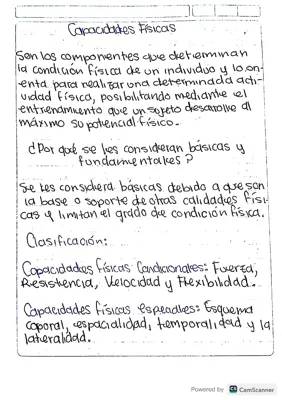 Capacidades Físicas
Son los componentes que determinan
la condición física de un individuo y lo ori-
enta para realizar una determinada acti-
vidad física, posibilitando mediante el
entrenamiento que un sujeto desarrolle al
máximo su potencial físico.
¿Por qué se les consideran básicas y
fundamentales?
Se les considera básicas debido a que son
la base o soporte de otras calidades físi-
cas y limitan el grado de condición física.
Clasificación:
Capacidades físicas Condicionales: Fuerza,
Resistencia, Velocidad y Flexibilidad.
Capacidades físicas especiales: Esquema
coporal, espacialidad, temporalidad y la
lateralidad.
Powered by CS CamScanner